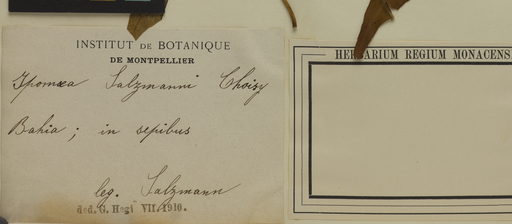 INSTITUT DE BOTANIQUE
DE MONTPELLIER
Ipomœa Salzmanni Choisy
Bahia ; in sepibus
leg. Salzmann
ded. G. Hegi VII. 1910.
HERBARIUM REGIUM MONACENS